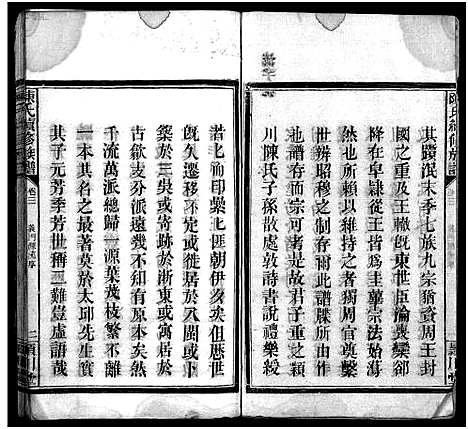 其隳泯末季七族九宗猶資周王封
國之重及王轍既東世臣淪喪欒郤
降在皁隸從王皆為圭蓽宗法始蕩
然也所賴以維持之者獨周官奠繫
世辨昭穆之制存爾此譜牒所由作
者存而宗可考也是故君子重宗
川陳氏子孫散處敦詩書說禮樂綬
若北而印纍北匪朝伊夕矣但歷世
既久遷移不一或徙居於八閩或卜
築於三吳或寄跡於浙東或寓居於
古歙支分派遠幾不知有原本矣然
千流萬派總歸一源葉茂枝繁不離
一本其名之最著莫於太邱先生實
其子元芳季芳世稱二難豈虛語哉
陳氏續修族譜
卷三
二